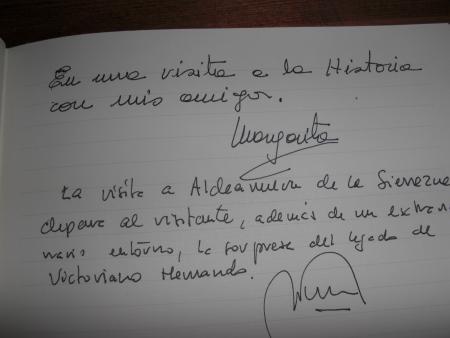 En una visita a la Historia
con mis amigos.
Margarita
La visita a Aldeanueva de la Serrezuela
depara al visitante, además de un extraor-
nario entorno, la sorpresa del legado de
Victoriano Hernando.